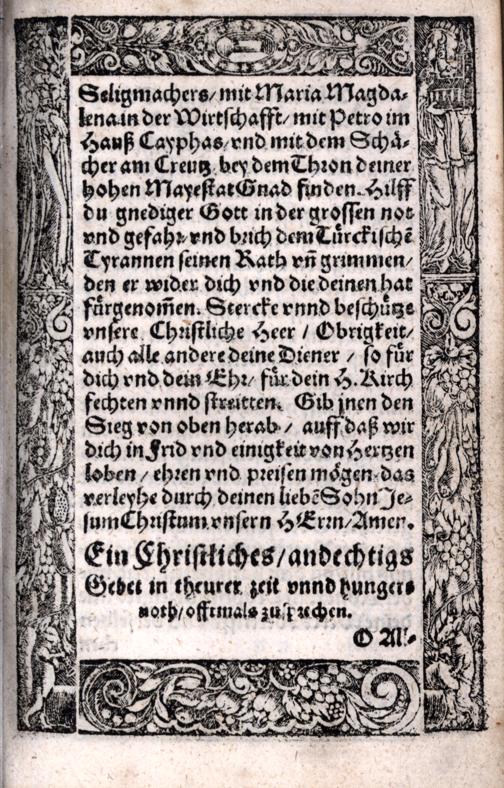 Seligmachers/ mit Maria Magda-
lena in der Wirtschafft/ mit Petro im
Hauß Cayphas/ vnd mit dem Schä-
cher am Creutz bey dem Thron deiner
hohen Mayestat Gnad finden. Hilff
du gnediger Gott in der grossen not
vnd gefahr vnd brich dem Türckischē
Tyrannen seinen Rath vñ grimmen/
den er wider dich vnd die deinen hat
fürgenom̃en. Stercke vnnd beschütze
vnsere Christliche Heer / Obrigkeit/
auch alle andere deine Diener / so für
dich vnd dein Ehr/ für dein H. Kirch
fechten vnnd streitten. Gib jnen den
Sieg von oben herab / auff daß wir
dich in Frid vnd einigkeit von Hertzen
loben / ehren vnd preisen mögen. das
verleyhe durch deinen liebē Sohn Je-
sum Christum vnsern HErrn/ Amen.
Ein Christliches/ andechtigs
Gebet in theurer zeit vnnd hungers
noth/ offtmals zu sprechen.
O All-